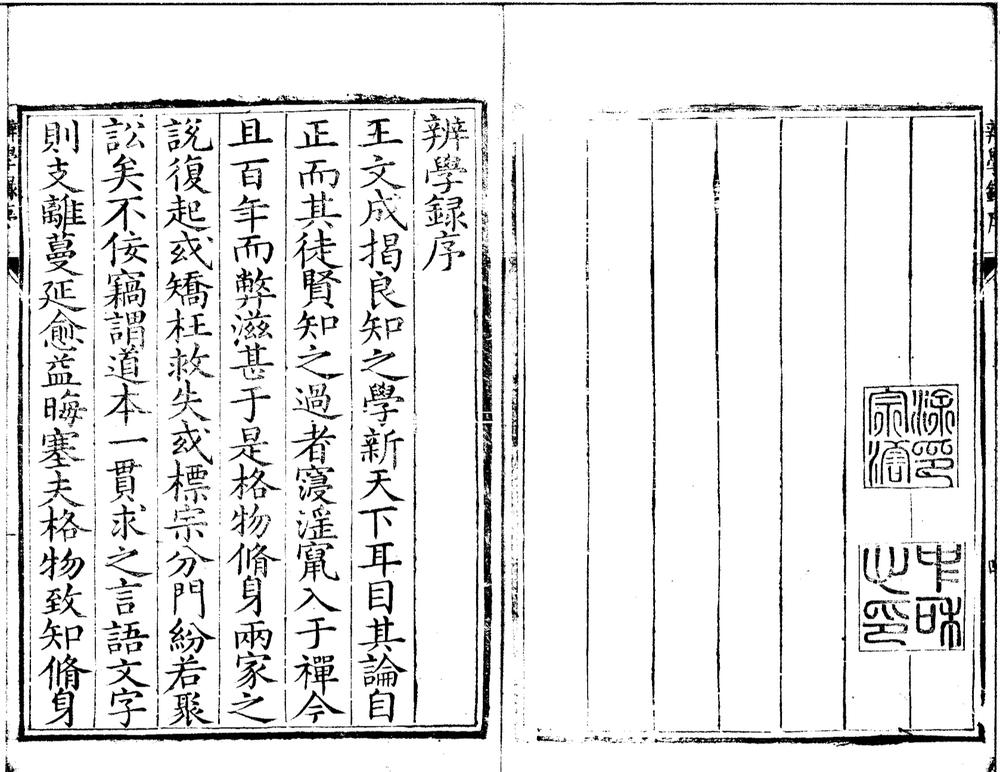 辨學録序
辨學録序
王文成揭良知之學新天下耳目其論自
正而其徒賢知之過者寖滛竄入于禪今
且百年而弊滋甚于是格物脩身兩家之
說復起或矯枉救失或標宗分門紛若聚
訟矣不佞竊謂道本一貫求之言語文字
則支離蔓延愈益晦塞夫格物致知脩身